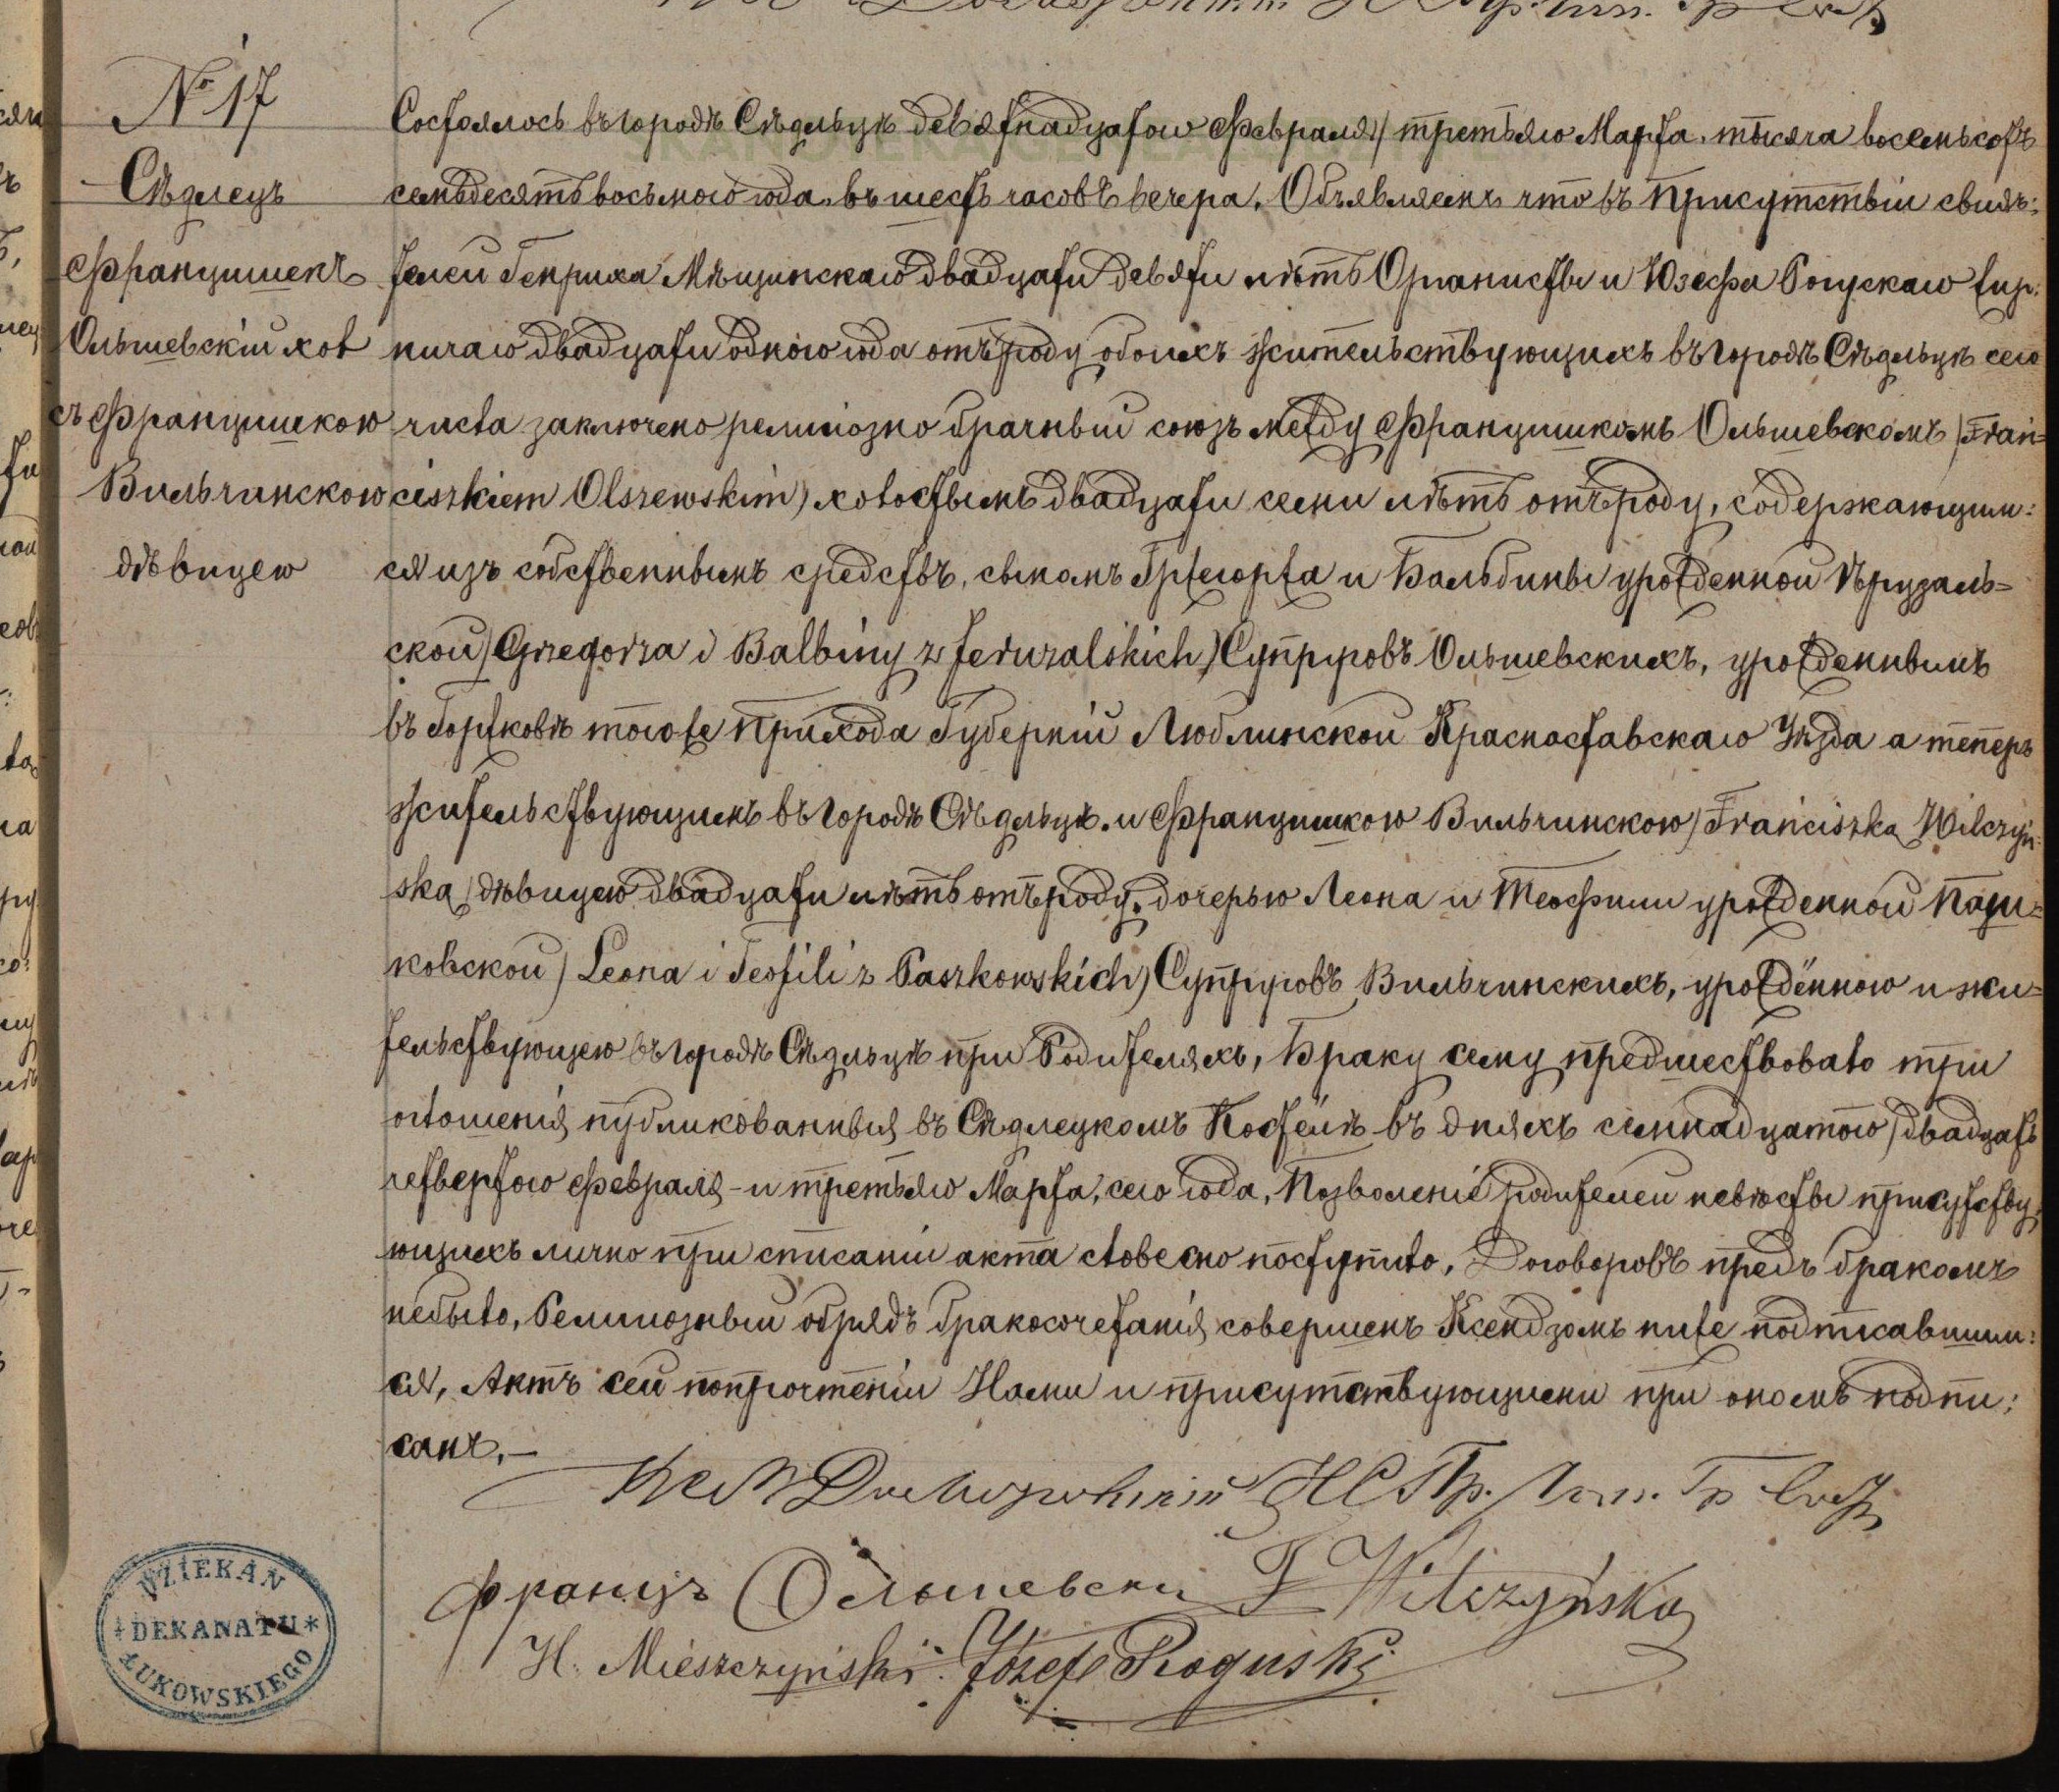 № 17
Сѣдлецъ
Францишекъ
Ольшевскій хол
съ Францишкою
Вильчинскою
дѣвицею
Состоялось въ городѣ Сѣдльцѣ девятнадцатого Февраля / третьяго Марта, тысяча восемьсотъ
семьдесятъ восьмого года, въ шесть часовъ вечера. Объявляемъ что въ присутствіи свидѣ:
телей Генриха Мѣщинскаго двадцати девяти лѣтъ Органисты и Юзефа Рогускаго
кичаго двадцати одного года отъ роду обоихъ жительствующихъ въ городѣ Сѣдльцѣ сего
числа заключено религіозно брачный союзъ между Францишкомъ Ольшевскомъ /Fran=
ciszkiem Olszewskim) холостымъ двадцати семи лѣтъ отъ роду, содержающим:
ся изъ собственнымъ средствъ, сыномъ Гржегоржа и Бальбины урожденной Ѣрузаль=
ской) Grzegorza i Balbiny z Jeruzalskich) Супруговъ Ольшевскихъ, урожденнымъ
въ Горжковѣ тогоже прихода Губерніи Люблинской Красноставскаго Уѣзда а теперь
жительствующимъ въ городѣ Сѣдльцѣ. и Францишкою Вильчинскою) Franciszką Wilczyń=
ską) дѣвицею двадцати лѣтъ отъ роду, дочерью Леона и Теофили урожденной Паш=
ковской) Leona i Teofili z Paszkowskich) Супруговъ Вильчинскихъ, урождённою и жи=
тельствующею въ городѣ Сѣдльцѣ при Родителяхъ, Браку сему предшествовало три
оглошенія публикованныя въ Сѣдлецкомъ Костёлѣ въ дняхъ семнадцатого / двадцать
четвертого Февраля - и третьяго Марта, сего года, Позволеніе родителей невѣсты присутству:
ющихъ лично при списаніи акта словесно поступило, Договоровъ предъ бракомъ
небыло, Религіозный обрядъ бракосочетанія совершенъ Ксендзомъ ниже подписавшим:
ся, Актъ сей попрочтеніи Нами и присутствующими при ономъ подпи:
санъ.—
Францъ Ольшевски F Wilczyńska
H. Mieszczyński. Józef Roguski
DZIEKAN
DEKANATU
ŁUKOWSKIEGO